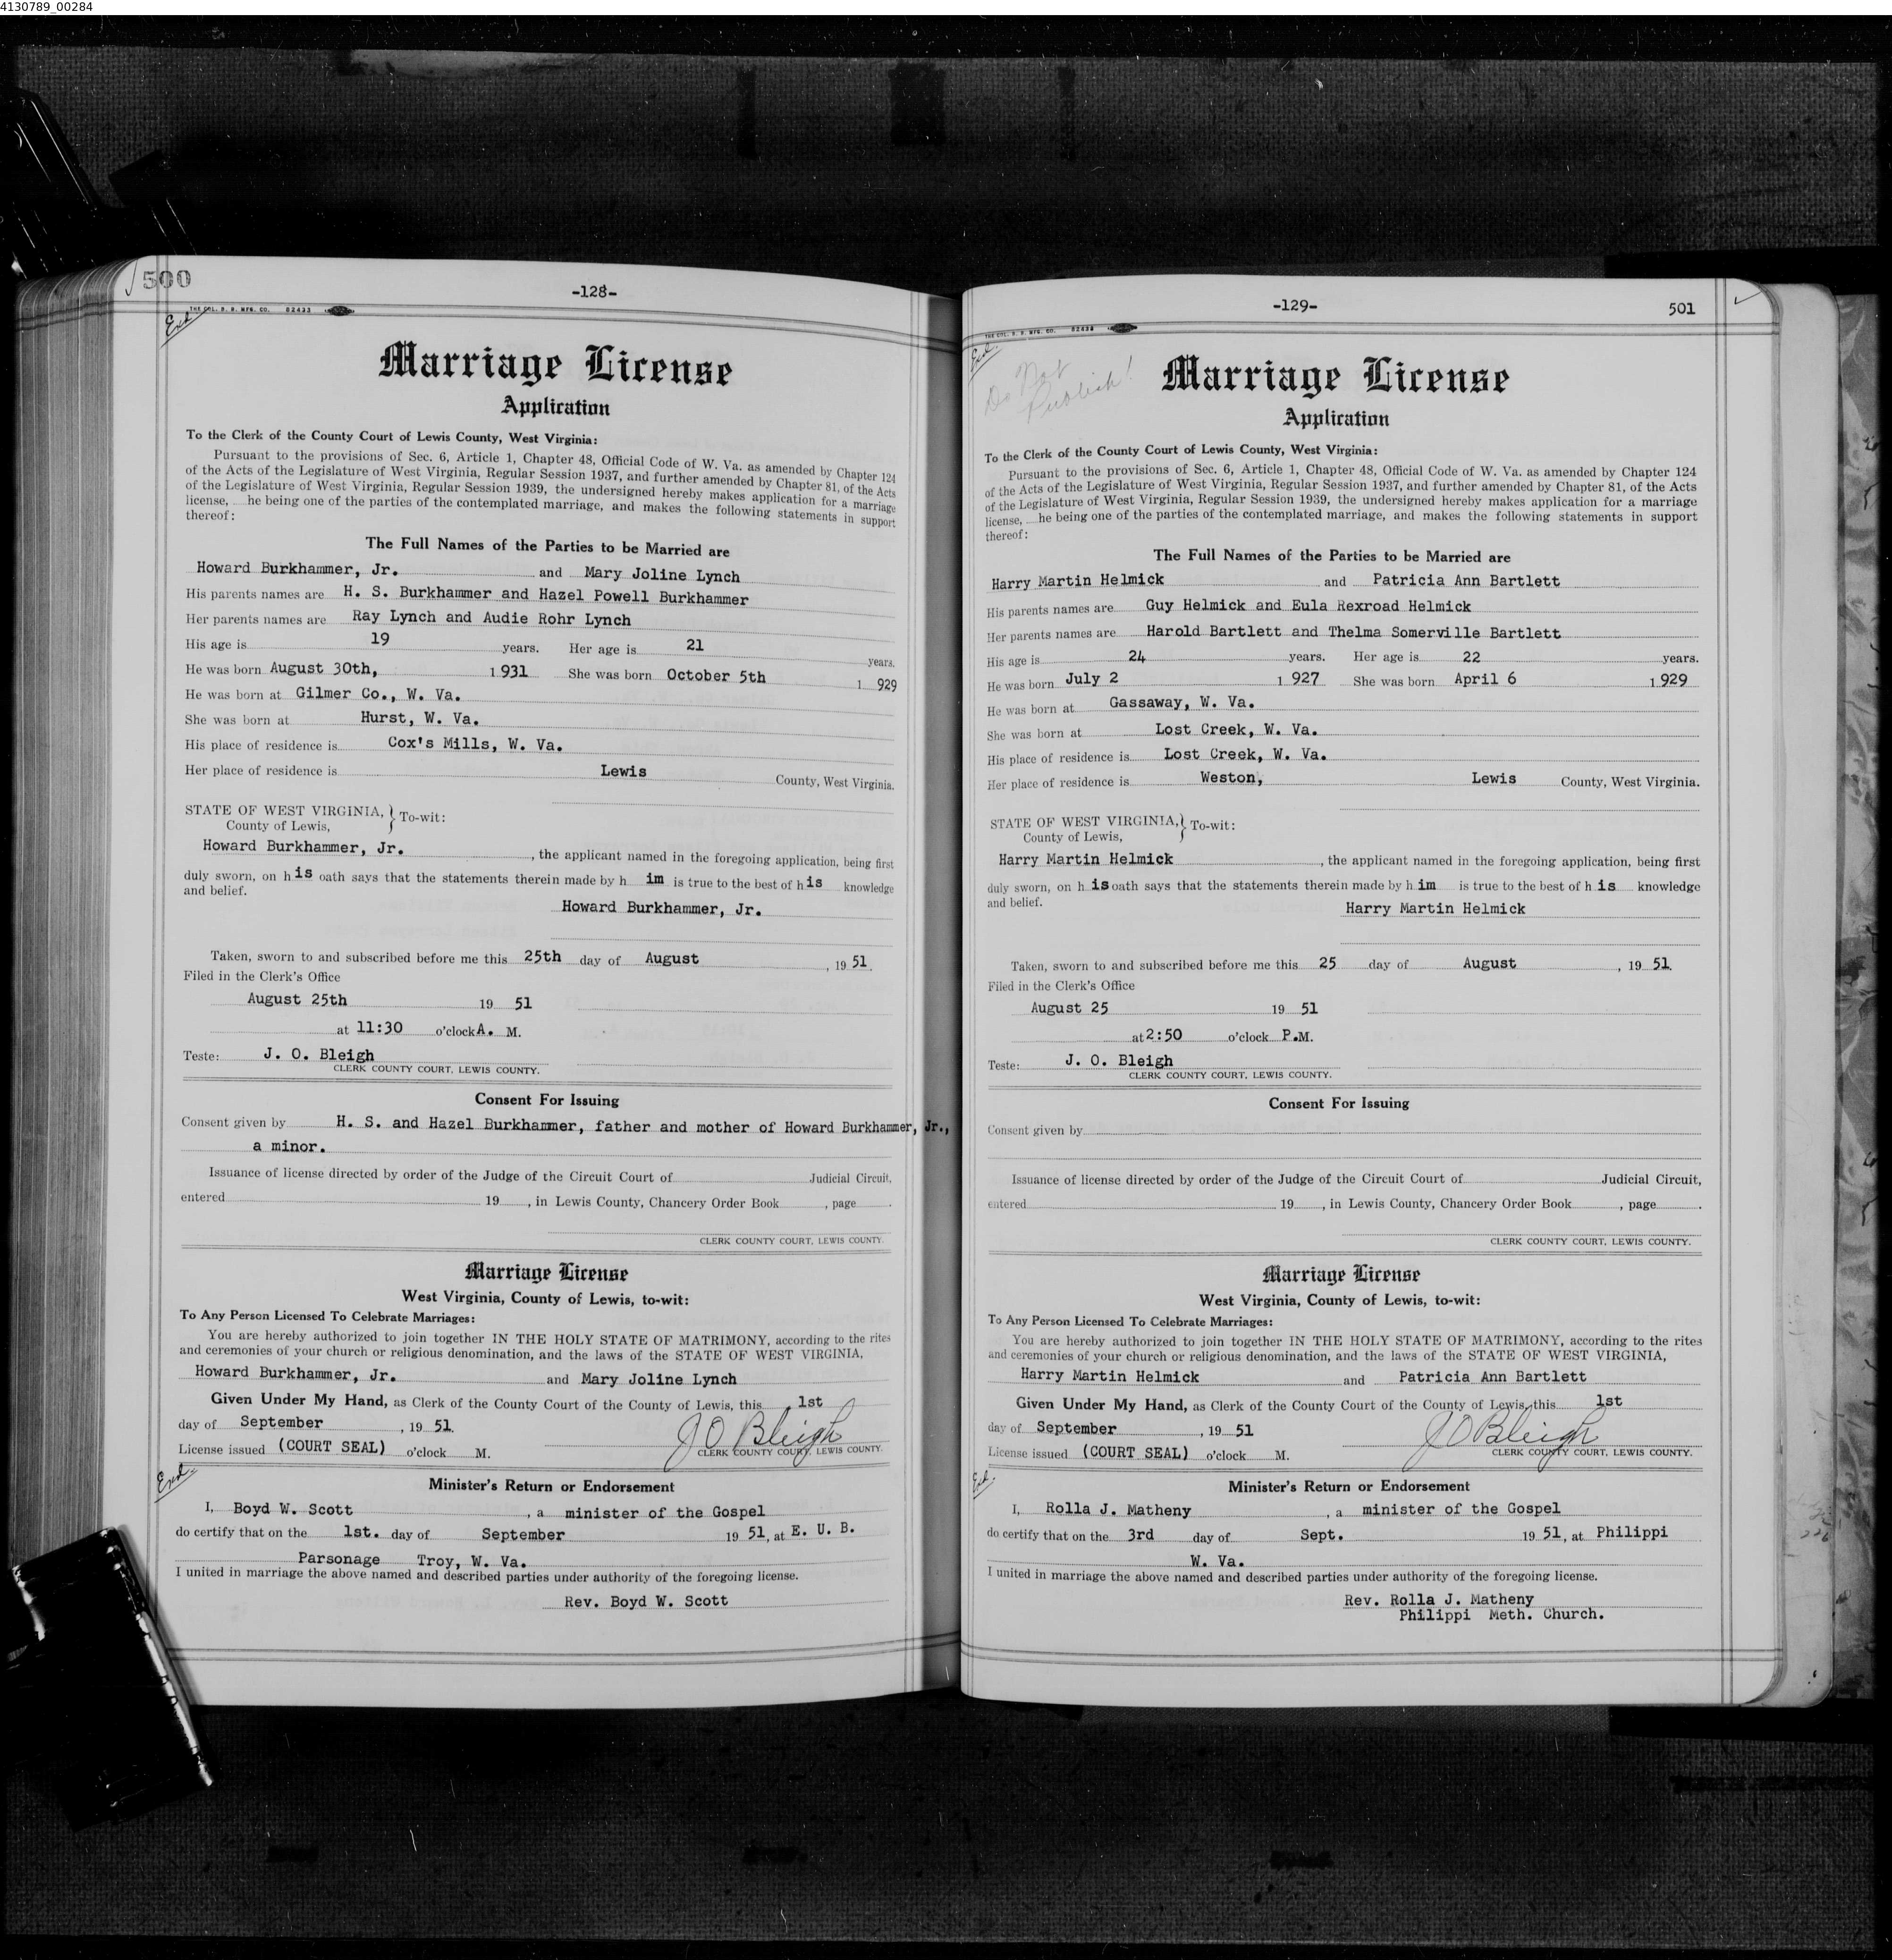 4130789_00284
500
-128-
THE COL. B. B. MFG. CO. 82433
Exd.
Marriage License
Application
To the Clerk of the County Court of Lewis County, West Virginia:
Pursuant to the provisions of Sec. 6, Article 1, Chapter 48, Official Code of W. Va. as amended by Chapter 124
of the Acts of the Legislature of West Virginia, Regular Session 1937, and further amended by Chapter 81, of the Acts
of the Legislature of West Virginia, Regular Session 1939, the undersigned hereby makes application for a marriage
license, he being one of the parties of the contemplated marriage, and makes the following statements in support
thereof:
The Full Names of the Parties to be Married are
Howard Burkhammer, Jr. and Mary Joline Lynch
His parents names are H. S. Burkhammer and Hazel Powell Burkhammer
Her parents names are Ray Lynch and Audie Rohr Lynch
His age is 19 years. Her age is 21 years.
He was born August 30th, 1 931 She was born October 5th 1 929
He was born at Gilmer Co., W. Va.
She was born at Hurst, W. Va.
His place of residence is Cox's Mills, W. Va.
Her place of residence is Lewis County, West Virginia.
STATE OF WEST VIRGINIA,
County of Lewis, } To-wit:
Howard Burkhammer, Jr. , the applicant named in the foregoing application, being first
duly sworn, on h is oath says that the statements therein made by h im is true to the best of h is knowledge
and belief.
Howard Burkhammer, Jr.
Taken, sworn to and subscribed before me this 25th day of August , 19 51.
Filed in the Clerk's Office
August 25th 19 51
at 11:30 o'clock A. M.
Teste: J. O. Bleigh
CLERK COUNTY COURT, LEWIS COUNTY.
Consent For Issuing
Consent given by H. S. and Hazel Burkhammer, father and mother of Howard Burkhammer, Jr.,
a minor.
Issuance of license directed by order of the Judge of the Circuit Court of Judicial Circuit,
entered 19 , in Lewis County, Chancery Order Book , page .
CLERK COUNTY COURT, LEWIS COUNTY.
Marriage License
West Virginia, County of Lewis, to-wit:
To Any Person Licensed To Celebrate Marriages:
You are hereby authorized to join together IN THE HOLY STATE OF MATRIMONY, according to the rites
and ceremonies of your church or religious denomination, and the laws of the STATE OF WEST VIRGINIA,
Howard Burkhammer, Jr. and Mary Joline Lynch
Given Under My Hand, as Clerk of the County Court of the County of Lewis, this 1st
day of September , 19 51.
J O Bleigh
License issued (COURT SEAL) o'clock M. CLERK COUNTY COURT, LEWIS COUNTY.
Exd.
Minister's Return or Endorsement
I, Boyd W. Scott , a minister of the Gospel
do certify that on the 1st. day of September 19 51, at E. U. B.
Parsonage Troy, W. Va.
I united in marriage the above named and described parties under authority of the foregoing license.
Rev. Boyd W. Scott
-129-
501
THE COL. B. B. MFG. CO. 82433
Exd.
Do Not
Publish!
Marriage License
Application
To the Clerk of the County Court of Lewis County, West Virginia:
Pursuant to the provisions of Sec. 6, Article 1, Chapter 48, Official Code of W. Va. as amended by Chapter 124
of the Acts of the Legislature of West Virginia, Regular Session 1937, and further amended by Chapter 81, of the Acts
of the Legislature of West Virginia, Regular Session 1939, the undersigned hereby makes application for a marriage
license, he being one of the parties of the contemplated marriage, and makes the following statements in support
thereof:
The Full Names of the Parties to be Married are
Harry Martin Helmick and Patricia Ann Bartlett
His parents names are Guy Helmick and Eula Rexroad Helmick
Her parents names are Harold Bartlett and Thelma Somerville Bartlett
His age is 24 years. Her age is 22 years.
He was born July 2 1 927 She was born April 6 1 929
He was born at Gassaway, W. Va.
She was born at Lost Creek, W. Va.
His place of residence is Lost Creek, W. Va.
Her place of residence is Weston, Lewis County, West Virginia.
STATE OF WEST VIRGINIA,
County of Lewis, } To-wit:
Harry Martin Helmick , the applicant named in the foregoing application, being first
duly sworn, on h is oath says that the statements therein made by h im is true to the best of h is knowledge
and belief.
Harry Martin Helmick
Taken, sworn to and subscribed before me this 25 day of August , 19 51.
Filed in the Clerk's Office
August 25 19 51
at 2:50 o'clock P.M.
Teste: J. O. Bleigh
CLERK COUNTY COURT, LEWIS COUNTY.
Consent For Issuing
Consent given by
Issuance of license directed by order of the Judge of the Circuit Court of Judicial Circuit,
entered 19 , in Lewis County, Chancery Order Book , page .
CLERK COUNTY COURT, LEWIS COUNTY.
Marriage License
West Virginia, County of Lewis, to-wit:
To Any Person Licensed To Celebrate Marriages:
You are hereby authorized to join together IN THE HOLY STATE OF MATRIMONY, according to the rites
and ceremonies of your church or religious denomination, and the laws of the STATE OF WEST VIRGINIA,
Harry Martin Helmick and Patricia Ann Bartlett
Given Under My Hand, as Clerk of the County Court of the County of Lewis, this 1st
day of September , 19 51
J O Bleigh
License issued (COURT SEAL) o'clock M. CLERK COUNTY COURT, LEWIS COUNTY.
Exd.
Minister's Return or Endorsement
I, Rolla J. Matheny , a minister of the Gospel
do certify that on the 3rd day of Sept. 19 51, at Philippi
W. Va.
I united in marriage the above named and described parties under authority of the foregoing license.
Rev. Rolla J. Matheny
Philippi Meth. Church.